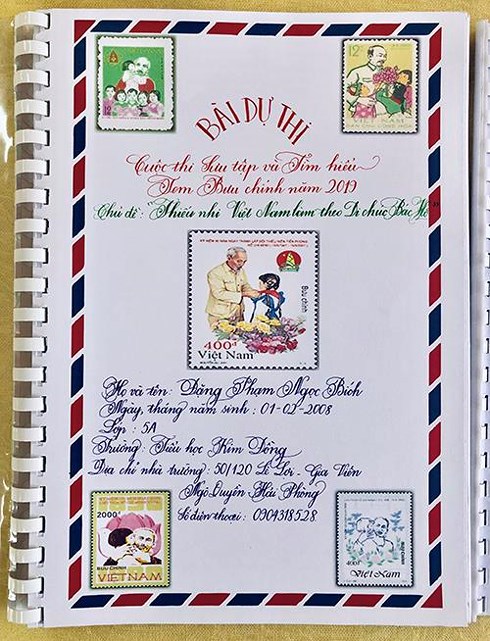 BÀI DỰ THI
Cuộc thi Sưu tập và Tìm hiểu
Tem Bưu chính năm 2019
Chủ đề: "Thiếu nhi Việt Nam làm theo Di chúc Bác Hồ"
12
VIỆT NAM
KỶ NIỆM 60 NĂM NGÀY THÀNH LẬP ĐỘI THIẾU NIÊN TIỀN PHONG
Bưu chính
400đ
Việt Nam
Họ và tên: Đặng Phạm Ngọc Bích
Ngày, tháng năm sinh: 01-02-2008
Lớp: 5A
Trường: Tiểu học Kim Đồng
Địa chỉ nhà trường: 50/120 Lê Lợi - Gia Viên
Ngô Quyền Hải Phòng
Số điện thoại: 0904318528
2000đ
BƯU CHÍNH
VIỆT NAM
400đ
Việt Nam